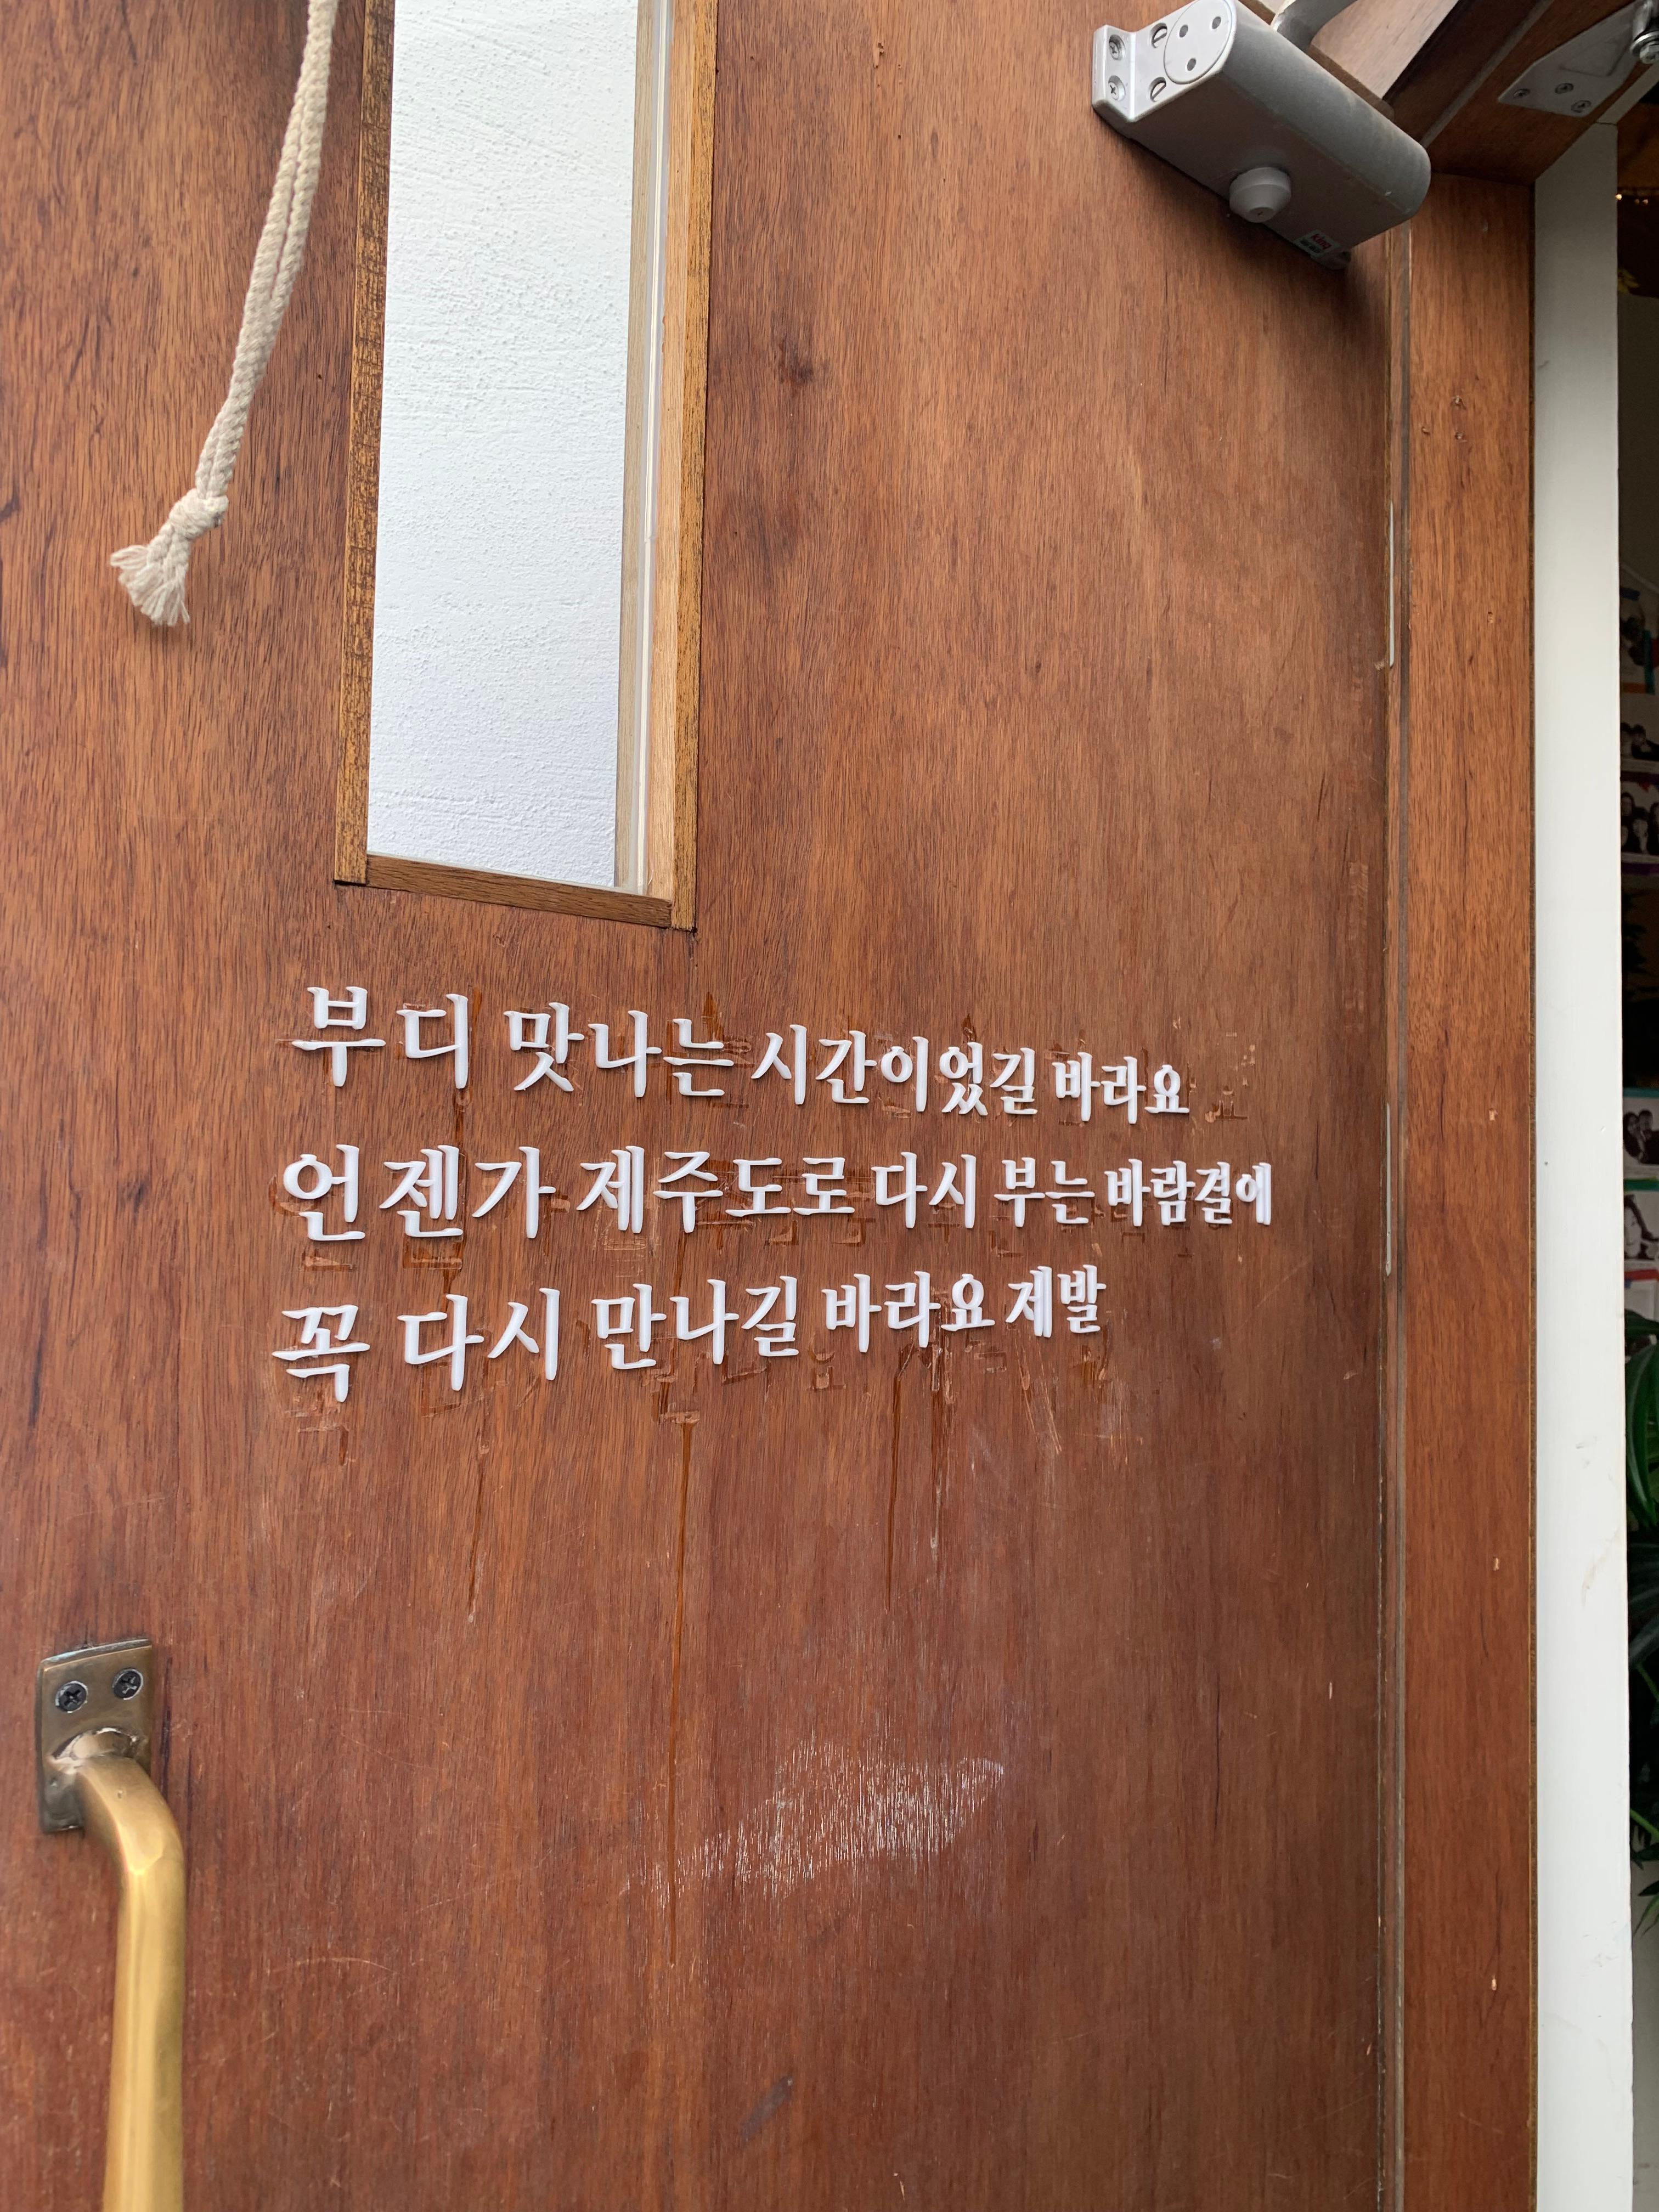 부디 맛나는 시간이었길 바라요
언젠가 제주도로 다시 부는 바람결에
꼭 다시 만나길 바라요 제발